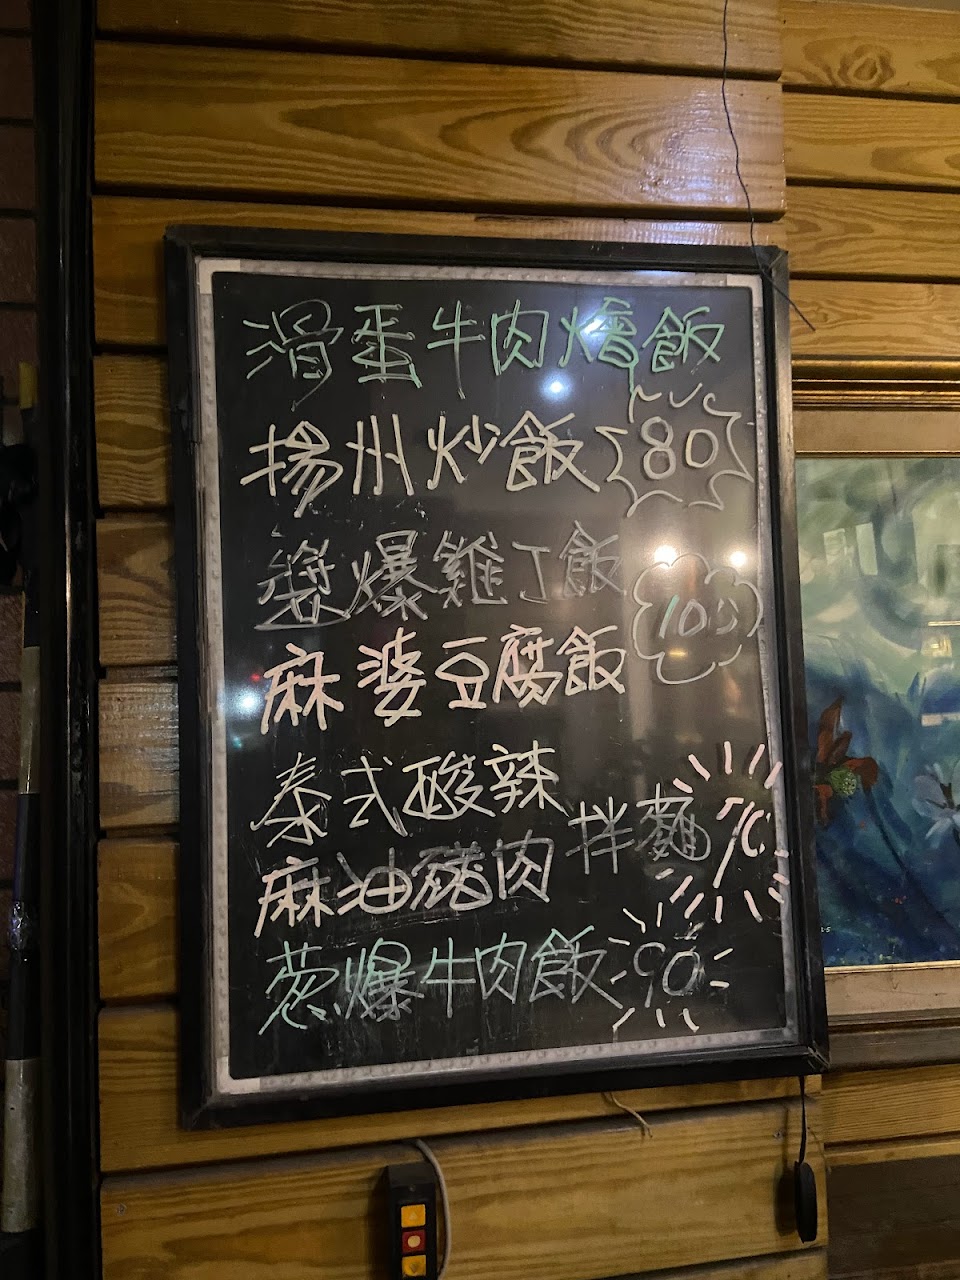 滑蛋牛肉燴飯
揚州炒飯 80
醬爆雞丁飯
100
麻婆豆腐飯
泰式酸辣
拌麵
麻油豬肉
葱爆牛肉飯 90